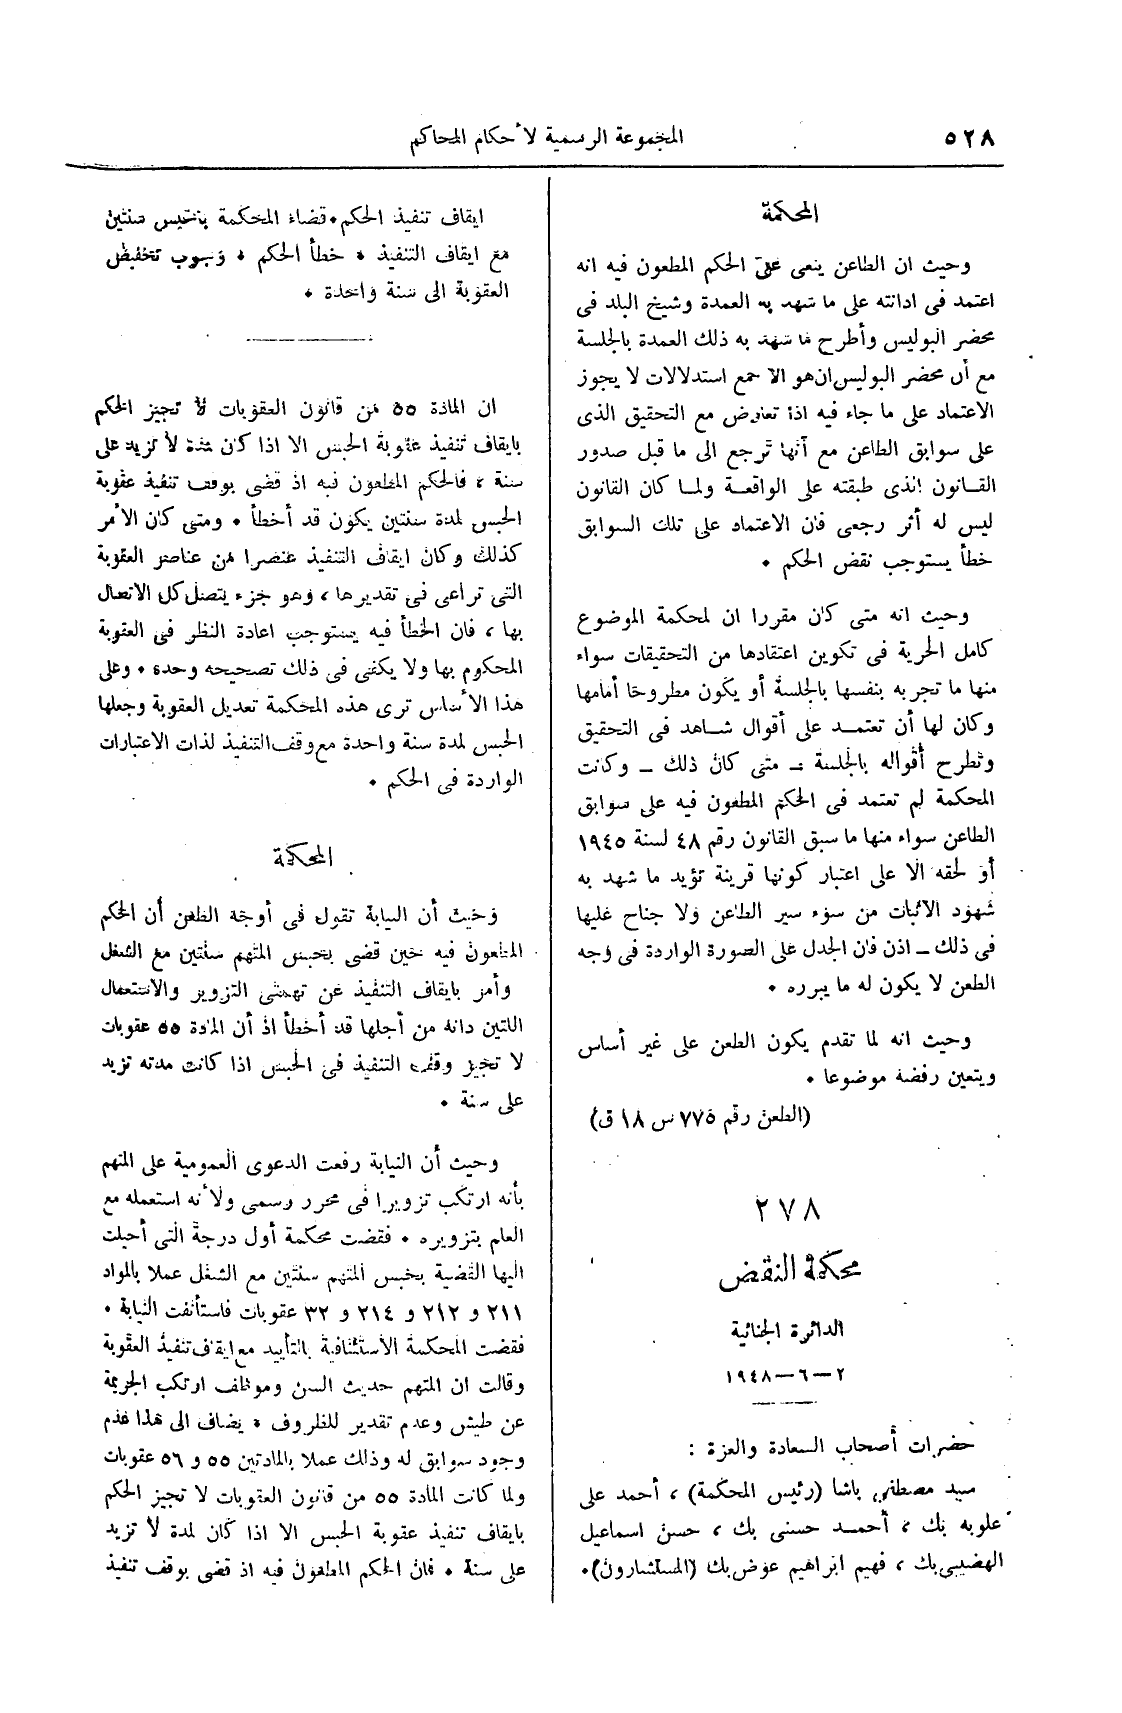 ٥٢٨
المجموعة الرسمية لأحكام المحاكم
المحكمة
وحيث ان الطاعن ينعى على الحكم المطعون فيه انه
اعتمد فى ادانته على ما شهد به العمدة وشيخ البلد فى
محضر البوليس وأطرح ما شهد به ذلك العمدة بالجلسة
مع أن محضر البوليس ان هو الا جمع استدلالات لا يجوز
الاعتماد على ما جاء فيه اذا تعارض مع التحقيق الذى
على سوابق الطاعن مع أنها ترجع الى ما قبل صدور
القـانون الذى طبقته على الواقعـة ولمـا كان القانون
ليس له أثر رجعى فان الاعتماد على تلك السوابق
خطأ يستوجب نقض الحكم .
وحيث انه متى كان مقررا ان لمحكمة الموضوع
كامل الحرية فى تكوين اعتقادها من التحقيقات سواء
منها ما تجريه بنفسها بالجلسة أو يكون مطروحا أمامها
وكان لها أن تعتمـد على أقوال شـاهد فى التحقيق
وتطرح أقواله بالجلسة ـ متى كان ذلك ـ وكانت
المحكمة لم تعتمد فى الحكم المطعون فيه على سوابق
الطاعن سواء منها ما سبق القانون رقم ٤٨ لسنة ١٩٤٥
أو لحقه الا على اعتبار كونها قرينة تؤيد ما شهد به
شهود الاثبات من سوء سير الطاعن ولا جناح عليها
فى ذلك ـ اذن فان الجدل على الصورة الواردة فى وجه
الطعن لا يكون له ما يبرره .
وحيث انه لما تقدم يكون الطعن على غير أساس
ويتعين رفضه موضوعا .
(الطعن رقم ٧٧٥ س ١٨ ق)
٢٧٨
محكمة النقض
الدائرة الجنائية
٢ــ٦ــ١٩٤٨
حضرات أصحاب السعادة والعزة :
سيد مصطفى باشا (رئيس المحكمة) ، أحمد على
علوبه بك ، أحمـد حسنى بك ، حسن اسماعيل
الهضيبى بك ، فهيم ابراهيم عوض بك (المستشارون).
ايقاف تنفيذ الحكم . قضاء المحكمة بحبس سنتين
مع ايقاف التنفيذ . خطأ الحكم . وجوب تخفيض
العقوبة الى سنة واحدة .
ان المادة ٥٥ من قانون العقوبات لا تجيز الحكم
بايقاف تنفيذ عقوبة الحبس الا اذا كان مدة لا تزيد على
سنة ، فالحكم المطعون فيه اذ قضى بوقف تنفيذ عقوبة
الحبس لمدة سنتين يكون قد أخطأ . ومتى كان الأمر
كذلك وكان ايقاف التنفيذ عنصرا من عناصر العقوبة
التى تراعى فى تقديرها ، وهو جزء يتصل كل الاتصال
بها ، فان الخطأ فيه يستوجب اعادة النظر فى العقوبة
المحكوم بها ولا يكفى فى ذلك تصحيحه وحده . وعلى
هذا الأساس ترى هذه المحكمة تعديل العقوبة وجعلها
الحبس لمدة سنة واحدة مع وقف التنفيذ لذات الاعتبارات
الواردة فى الحكم .
المحكمة
وحيث أن النيابة تقول فى أوجه الطعن أن الحكم
المطعون فيه حين قضى بحبس المتهم سنتين مع الشغل
وأمر بايقاف التنفيذ عن تهمتى التزوير والاستعمال
اللتين دانه من أجلها قد أخطأ اذ أن المادة ٥٥ عقوبات
لا تجيز وقف التنفيذ فى الحبس اذا كانت مدته تزيد
على سنة .
وحيث أن النيابة رفعت الدعوى العمومية على المتهم
بأنه ارتكب تزويرا فى محرر رسمى ولأنه استعمله مع
العلم بتزويره . فقضت محكمة أول درجة التى أحيلت
اليها القضية بحبس المتهم سنتين مع الشغل عملا بالمواد
٢١١ و ٢١٢ و ٢١٤ و ٣٢ عقوبات فاستأنفت النيابة .
فقضت المحكمة الاستئنافية بالتأييد مع ايقاف تنفيذ العقوبة
وقالت ان المتهم حديث السن وموظف ارتكب الجريمة
عن طيش وعدم تقدير للظروف . يضاف الى هذا عدم
وجود سوابق له وذلك عملا بالمادتين ٥٥ و ٥٦ عقوبات
ولما كانت المادة ٥٥ من قانون العقوبات لا تجيز الحكم
بايقاف تنفيذ عقوبة الحبس الا اذا كان لمدة لا تزيد
على سنة . فان الحكم المطعون فيه اذ قضى بوقف تنفيذ